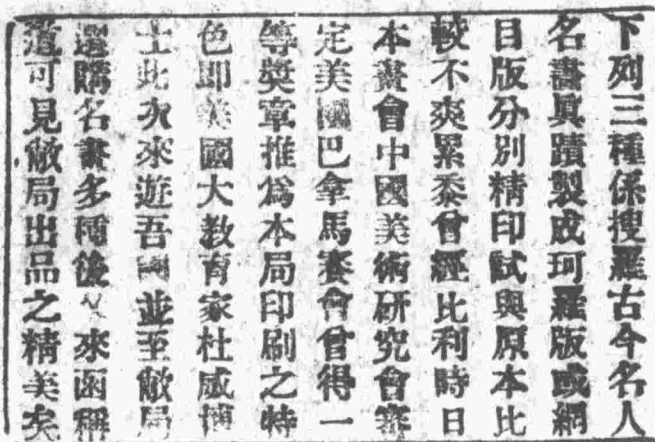 下列三種係搜羅古今名人
名書眞蹟製成珂羅版或網
目版分別精印試與原本比
較不爽累黍曾經比利時日
本畫會中國美術硏究會審
定美國巴拿馬賽會曾得一
等奬章推爲本局印刷之特
色卽美國大敎育家杜威博
士此次來遊吾國並至敝局
選購名畫多種後又來函稱
道可見敝局出品之精美矣